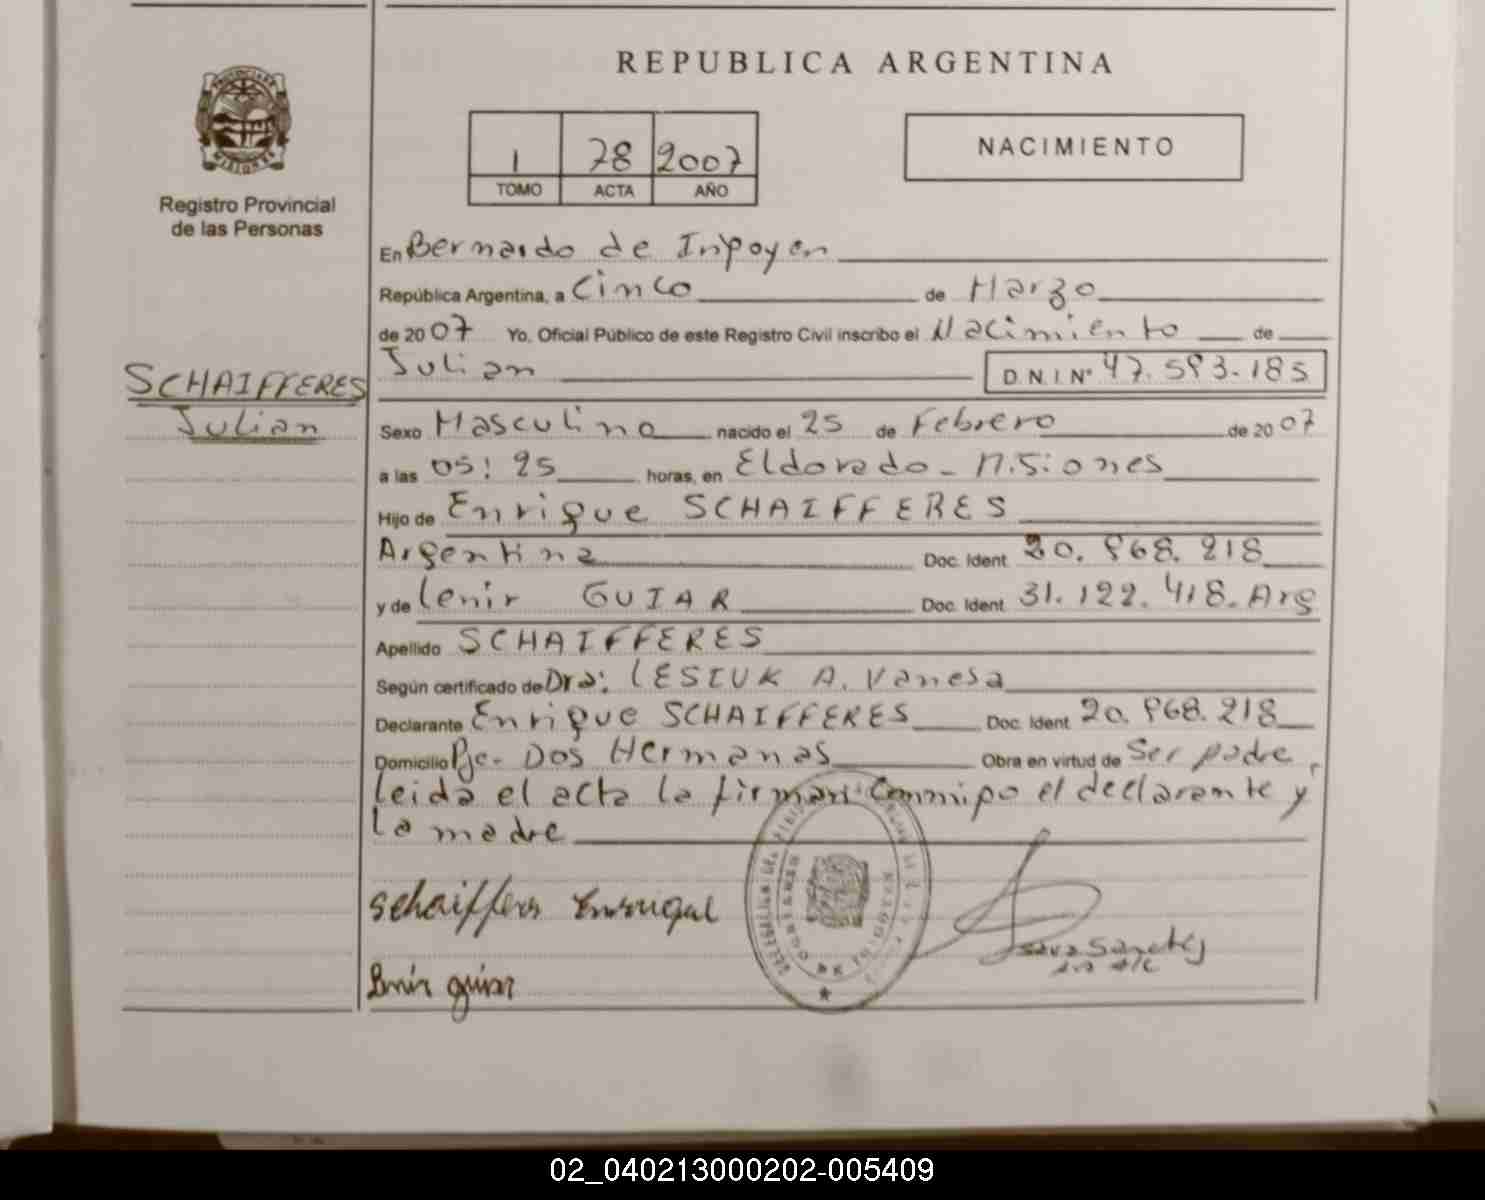 REPUBLICA ARGENTINA
MISIONES
Registro Provincial
de las Personas
1 78 2007
TOMO ACTA AÑO
NACIMIENTO
En Bernardo de Irigoyen
República Argentina, a Cinco de Marzo
de 2007 Yo, Oficial Público de este Registro Civil inscribo el Nacimiento de
Julian D.N.I. Nº 47.593.185
SCHAIFFERES
Julian
Sexo Masculino nacido el 25 de Febrero de 2007
a las 05:25 horas, en Eldorado - Misiones
Hijo de Enrique SCHAIFFERES
Argentina Doc. Ident. 20.968.218
y de Lenir GUIAR Doc. Ident. 31.122.418. Arg
Apellido SCHAIFFERES
Según certificado de Dra: LESIUK A. Vanesa
Declarante Enrique SCHAIFFERES Doc. Ident. 20.968.218
Domicilio Pje. Dos Hermanas Obra en virtud de Ser padre,
leida el acta la firman Conmigo el declarante y
la madre
Lenir guiar
02_040213000202-005409